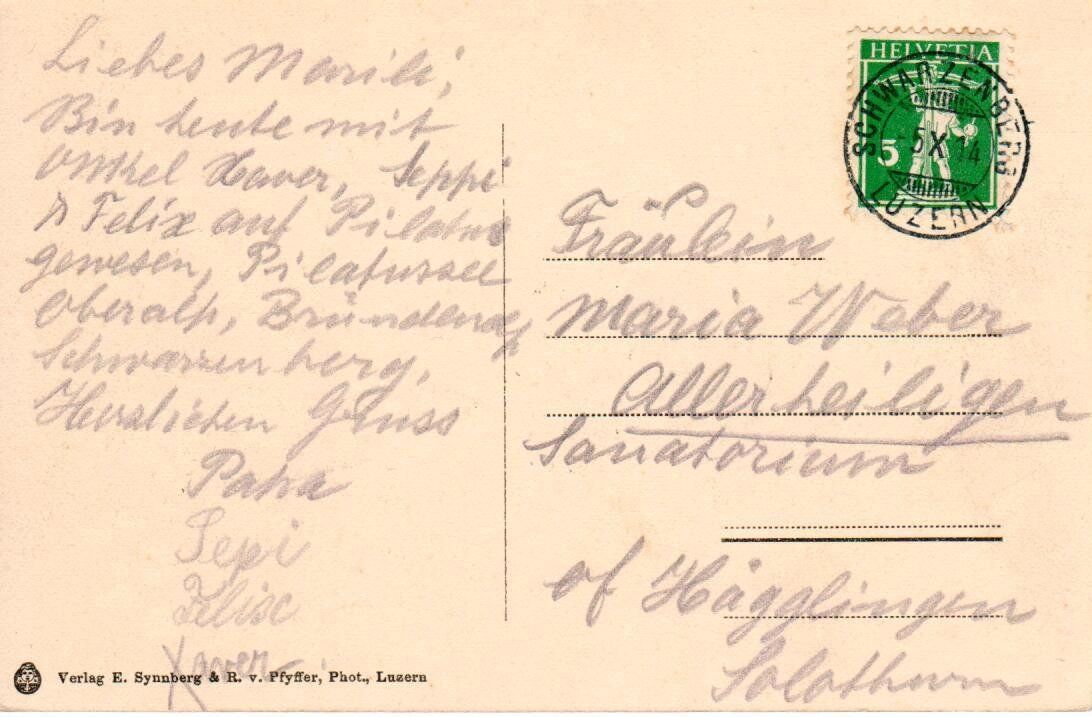 Liebes Marili,
Bin heute mit
Onkel Xaver, Seppi
& Felix auf Pilatus
gewesen, Pilatussee
Oberalp, Bründen
Schwarzenberg,
Herzlichen Gruss
Papa
Sepi
Felix
Xaver
Verlag E. Synnberg & R. v. Pfyffer, Phot., Luzern
HELVETIA
5
SCHWARZENBERG
-5 X 14
LUZERN
Fräulein
Maria Weber
Allerheiligen
Sanatorium
of Hägglingen
Solothurn